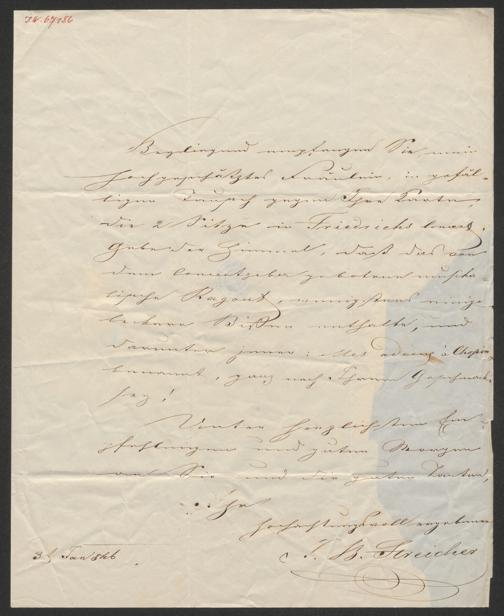 I.N. 67186
Beyliegend empfangen Sie, mein
hochgeschätztes Fräulein, in gefäl-
ligen Tausch gegen Ihre Karten
die 2 Sitze in Friedrichs Concert.
Gebe der Himmel, daß das von
dem Concertgeber gebotene musika-
lische Ragout, wenigstens einige
leckere Bißen enthalte, und
darunter jener: à Chopin
benannt, ganz nach Ihrem Geschmack
sey!
Unter herzlichsten Em-
pfehlungen und guten Morgen
an Sie und die guten Tanten,
Ihr
hochachtungsvoll ergebener
J. B. Streicher
Jan 846